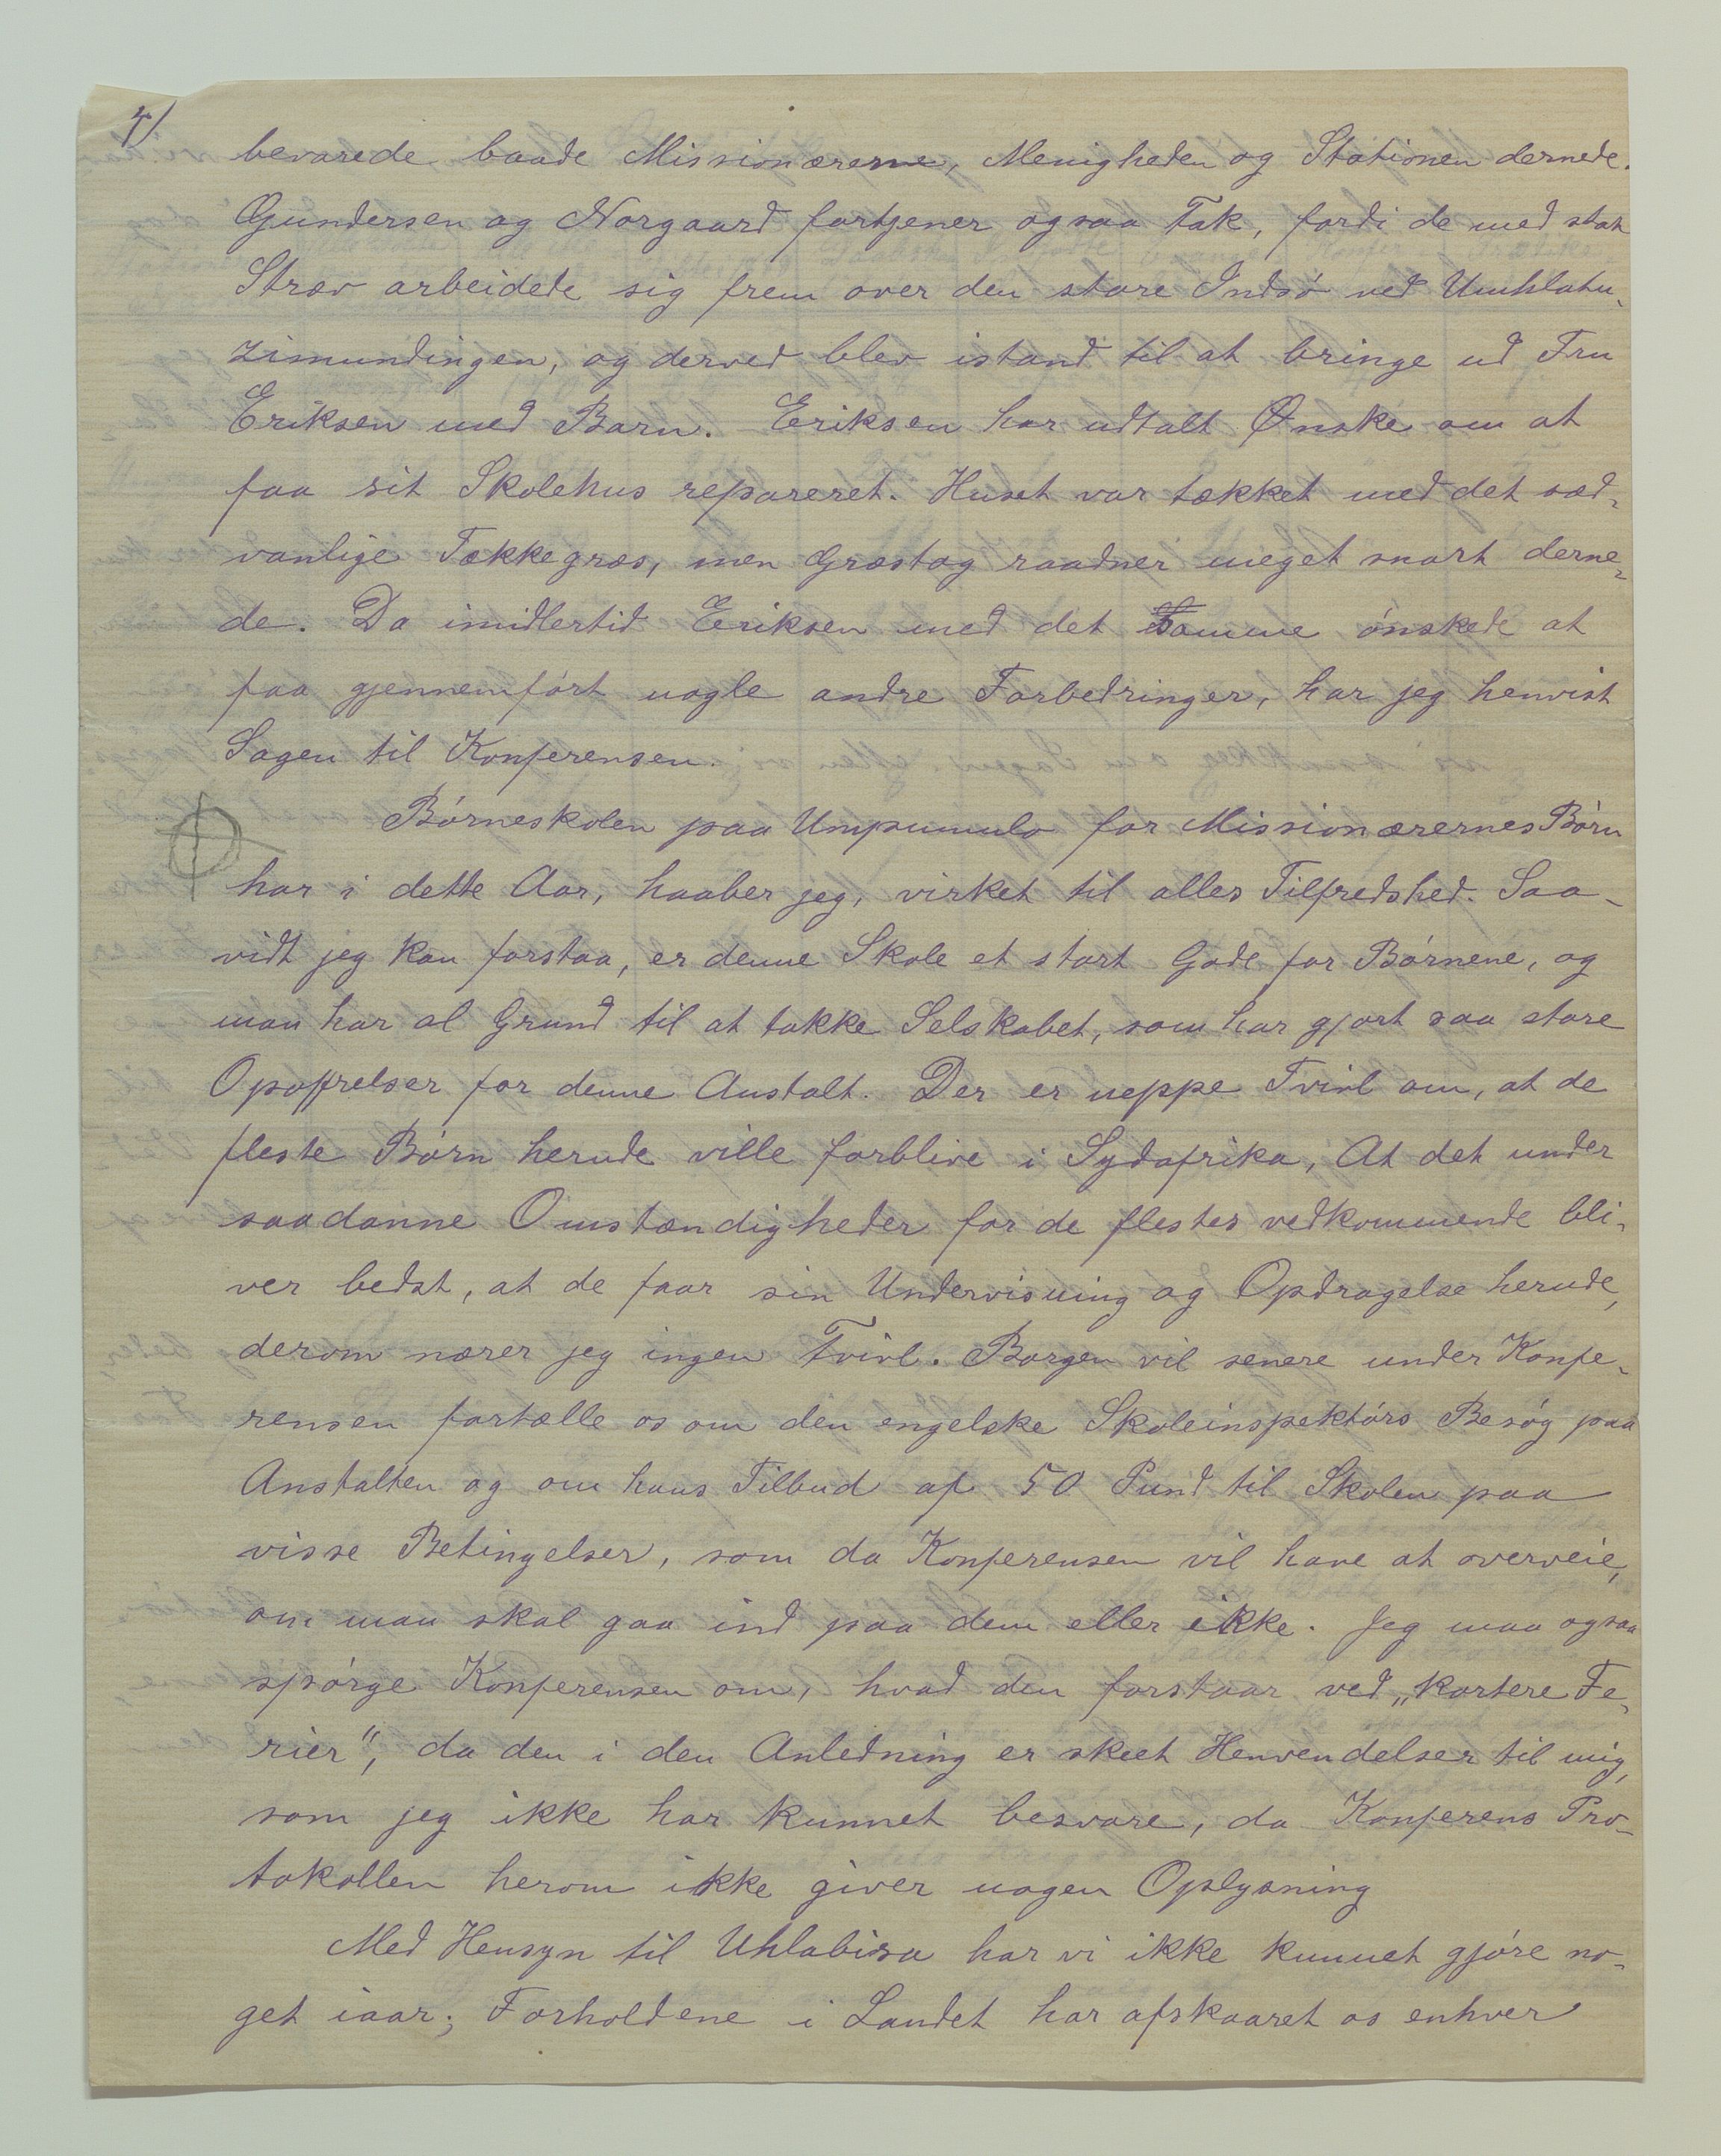 4/
bevarede baade Missionærerne, Menigheden og Stationen dernede.
Gundersen og Norgaard fortjener ogsaa Tak, fordi de med stor
Stræv arbeidede sig frem over den store Indsö ved Umhlatu-
zimundingen, og derved blev istand til at bringe ud Fru
Eriksen med Barn. Eriksen har udtalt Ønske om at
faa sit Skolehus repareret. Huset var tækket med det sæd-
vanlige Tækkegræs, men Græstag raadner meget snart derne-
de. Da imidlertid Eriksen med det Samme önskede at
faa gjennemfört nogle andre Forbedringer, har jeg henvist
Sagen til Konferensen.
Börneskolen paa Umpumulo for Missionærernes Börn
har i dette Aar, haaber jeg, virket til alles Tilfredshed. Saa-
vidt jeg kan forstaa, er denne Skole et stort Gode for Börnene, og
man har al Grund til at takke Selskabet, som har gjort saa store
Opoffrelser for denne Anstalt. Der er neppe Tvivl om, at de
fleste Börn herude ville forblive i Sydafrika, At det under
saadanne Omstændigheder for de flestes vedkommende bli-
ver bedst, at de faar sin Undervisning og Opdragelse herude,
derom nærer jeg ingen Tvivl. Borgen vil senere under Konfe-
rensen fortælle os om den engelske Skoleinspektörs Besög paa
Anstalten og om hans Tilbud af 50 Pund til Skolen paa
visse Betingelser, som da Konferensen vil have at overveie,
om man skal gaa ind paa dem eller ikke. Jeg maa ogsaa
spörge Konferensen om, hvad den forstaar ved „kortere Fe-
rier", da den i den Anledning er skeet Henvendelser til mig,
som jeg ikke har kunnet besvare, da Konferens Pro-
tokollen herom ikke giver nogen Oplysning
Med Hensyn til Uhlabisa har vi ikke kunnet gjöre no-
get iaar; Forholdene i Landet har afskaaret os enhver